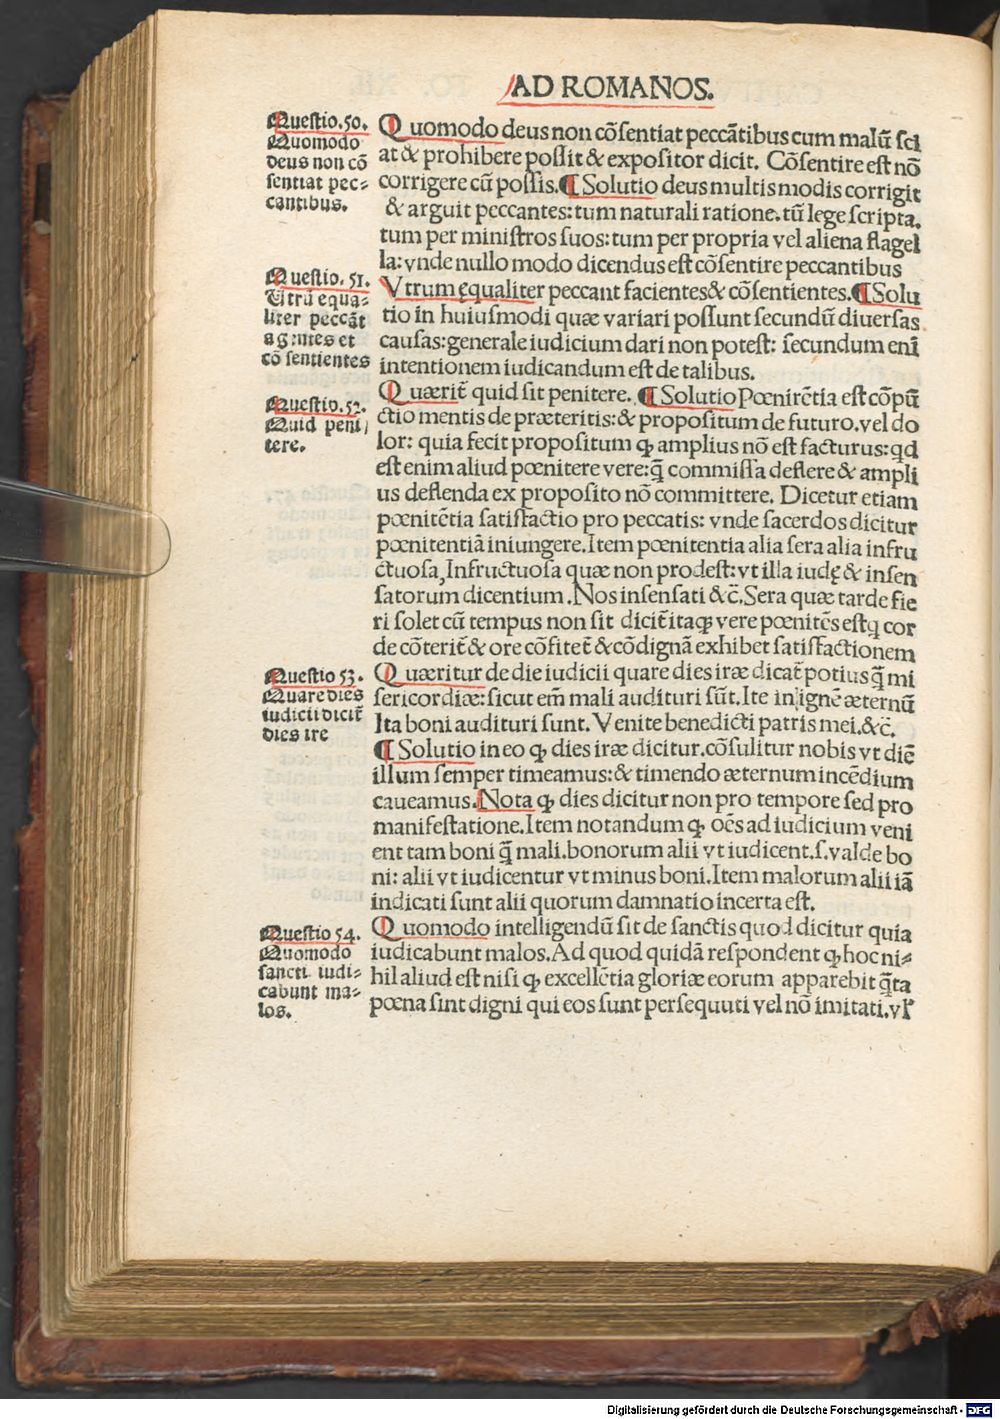 AD ROMANOS.
Questio.50.
Quomodo
deus non cō
sentiat pec⸗
cantibus.
Quomodo deus non cōsentiat peccātibus cum malū sci
at & prohibere possit & expositor dicit. Cōsentire est nō
corrigere cū possis.¶ Solutio deus multis modis corrigit
& arguit peccantes: tum naturali ratione. tū lege scripta.
tum per ministros suos: tum per propria vel aliena flagel
la: vnde nullo modo dicendus est cōsentire peccantibus
Questio. 51.
Utrū equa⸗
liter peccāt
agentes et
cō sentientes
Vtrum ęqualiter peccant facientes & cōsentientes.¶ Solu
tio in huiusmodi quæ variari possunt secundū diuersas
causas: generale iudicium dari non potest: secundum enī
intentionem iudicandum est de talibus.
Questio. 52.
Quid peni
tere.
Quærit̄ quid sit penitere. ¶ Solutio Pœnirētia est cōpū
ctio mentis de præteritis: & propositum de futuro. vel do
lor: quia fecit propositum ꝙ amplius nō est facturus: qd
est enim aliud pœnitere vere: q̄ commissa deflere & ampli
us deflenda ex proposito nō committere. Dicetur etiam
pœnitētia satisfactio pro peccatis: vnde sacerdos dicitur
pœnitentiā iniungere. Item pœnitentia alia sera alia infru
ctuosa, Infructuosa quæ non prodest: vt illa iudę & insen
satorum dicentium. Nos insensati &c̄. Sera quæ tarde fie
ri solet cū tempus non sit dicit̄ itaqȝ vere pœnitēs est q cor
de cōterit̄ & ore cōfitet̄ & cōdignā exhibet satisfactionem
Questio 53.
Quare dies
iudicii dicit̄
dies ire
Quæritur de die iudicii quare dies iræ dicat̄ potius q̄ mi
sericordiæ: sicut em̄ mali audituri sūt. Ite in ignē æternū
Ita boni audituri sunt. Venite benedicti patris mei. &c̄.
¶ Solutio in eo ꝙ dies iræ dicitur. cōsulitur nobis vt diē
illum semper timeamus: & timendo æternum incēdium
caueamus. Nota ꝙ dies dicitur non pro tempore sed pro
manifestatione. Item notandum ꝙ oēs ad iudicium veni
ent tam boni q̄ mali. bonorum alii vt iudicent. s. valde bo
ni: alii vt iudicentur vt minus boni. Item malorum alii iā
indicati sunt alii quorum damnatio incerta est.
Questio 54.
Quomodo
sancti iudi⸗
cabunt ma⸗
los.
Quomodo intelligendū sit de sanctis quod dicitur quia
iudicabunt malos. Ad quod quidā respondent ꝙ hoc ni⸗
hil aliud est nisi ꝙ excellētia gloriæ eorum apparebit q̄ta
pœna sint digni qui eos sunt persequuti vel nō imitati. vł
Digitalisierung gefördert durch die Deutsche Forschungsgemeinschaft - DFG